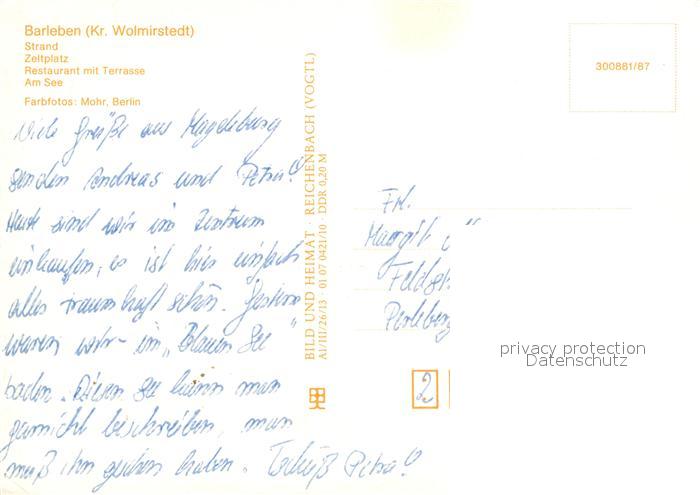 Barleben (Kr. Wolmirstedt)
Strand
Zeltplatz
Restaurant mit Terrasse
Am See
Farbfotos: Mohr, Berlin
Viele Grüße aus Magdeburg
senden Andreas und Petra!
Heute sind wir im Zentrum
einkaufen, es ist hier einfach
alles traumhaft schön. Gestern
waren wir im „Blauen See"
baden. Diesen See kann man
garnicht beschreiben, man
muß ihn gesehen haben. Tschüß Petra!
BILD UND HEIMAT · REICHENBACH (VOGTL)
A1/III/26/13 01 07 0421/10 · DDR 0,20 M
300881/87
Frl.
Margit
Feldst
Perleberg
2
privacy protection
Datenschutz